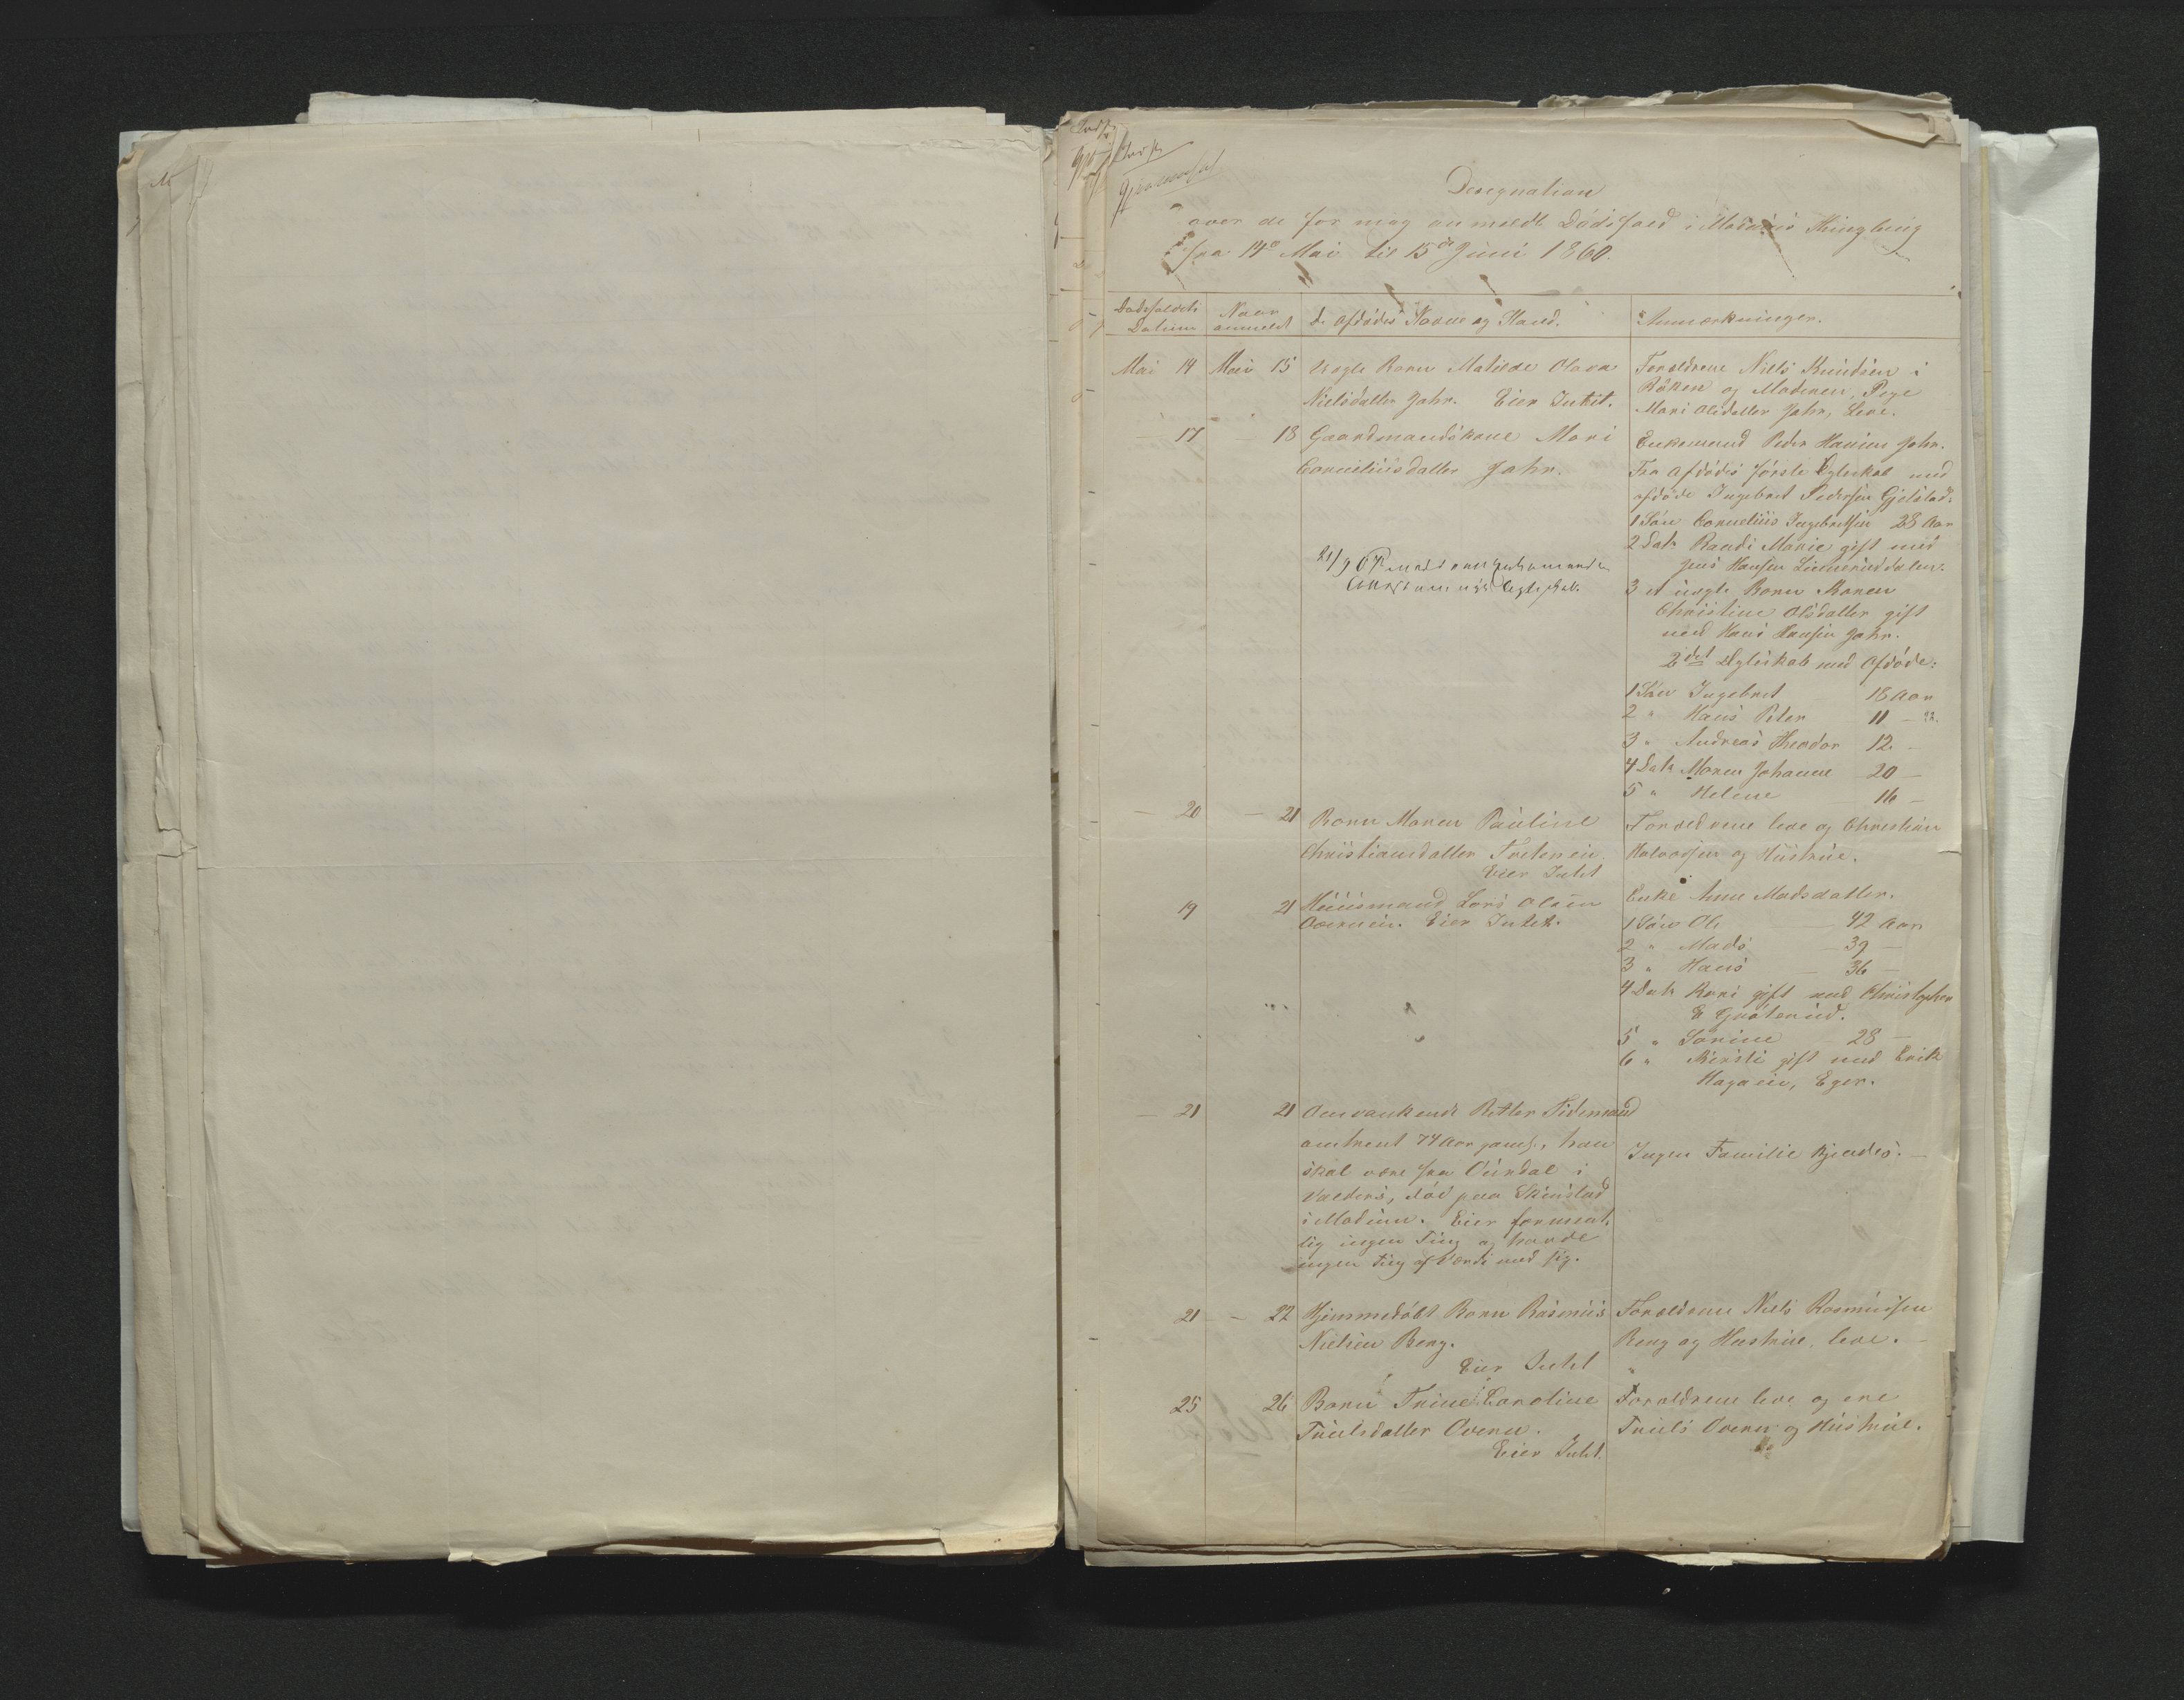 Designation
over de for mig anmeldte Dödsfald i Modums Thinglaug
fra 14de Mai til 15de Juni 1860.
Dødsfaldets Datum
Naar anmeldt
de afdödes Navne og Stand.
Anmærkninger.
Mai 14 Mai 15 uægte Barn Matilde Olava
Nielsdatter Jahr. Eier Intet.
Forældrene Niels Knudsen i
Röken og Moderen, Pige
Mari Olsdatter Jahr, Leve.
— 17 — 18 Gaardmandskone Mari
Corneliusdatter Jahr.
Enkemand Peder Hansen Jahr.
Fra Afdödes förste Egteskab med
afdöde Ingebret Pedersen Gjelstad:
1 Sön Cornelius Ingebretsen 28 Aar
2 Datr Randi Marie gift med
Jens Hansen Linneruddalen.
3 et uægte Barn Maren
Christine Olsdatter gift
med Hans Hansen Jahr.
2det Egteskab med Afdöde:
1 Sön Ingebret 18 Aar
2 " Hans Peter 11 —
3 " Andreas Theodor 12 —
4 Datr Maren Johanne 20 —
5 " Helene 16 —
21/9 60
— 20 — 21 Barn Maren Pauline
Christiansdatter
Eier Intet
Forældrene leve og Christian
Halvorsen og Hustrue.
19 21 Huusmand Lars Olsen
Eier Intet.
Enke Anne Madsdatter.
1 Sön Ole — 42 Aar
2 " Mads — 39 —
3 " Hans — 36 —
4 Datr Kari gift med Christopher
E
5 " Sörine 28 —
6 " Kirsti gift med Erik
Hagaen, Eger.
— 21 21 Omvankende Betler Tidemand
omtrent 74 Aar gaml., han
skal være fra Øurdal i
Valders, döe paa Skinstad
i Modum. Eier forment-
lig ingen Ting og havde
ingen ting af Værdi med sig.
Ingen Familie kjendes. —
21 — 22 Hjemmedöbt Barn Rasmus
Nielsen Berg.
Eier Intet
Forældrene Niels Rasmussen
Berg og Hustrue, leve. —
25 26 Barn Trine Caroline
Trulsdatter Overn.
Eier Intet.
Forældrene leve og ere
Truls Overn og Hustrue.